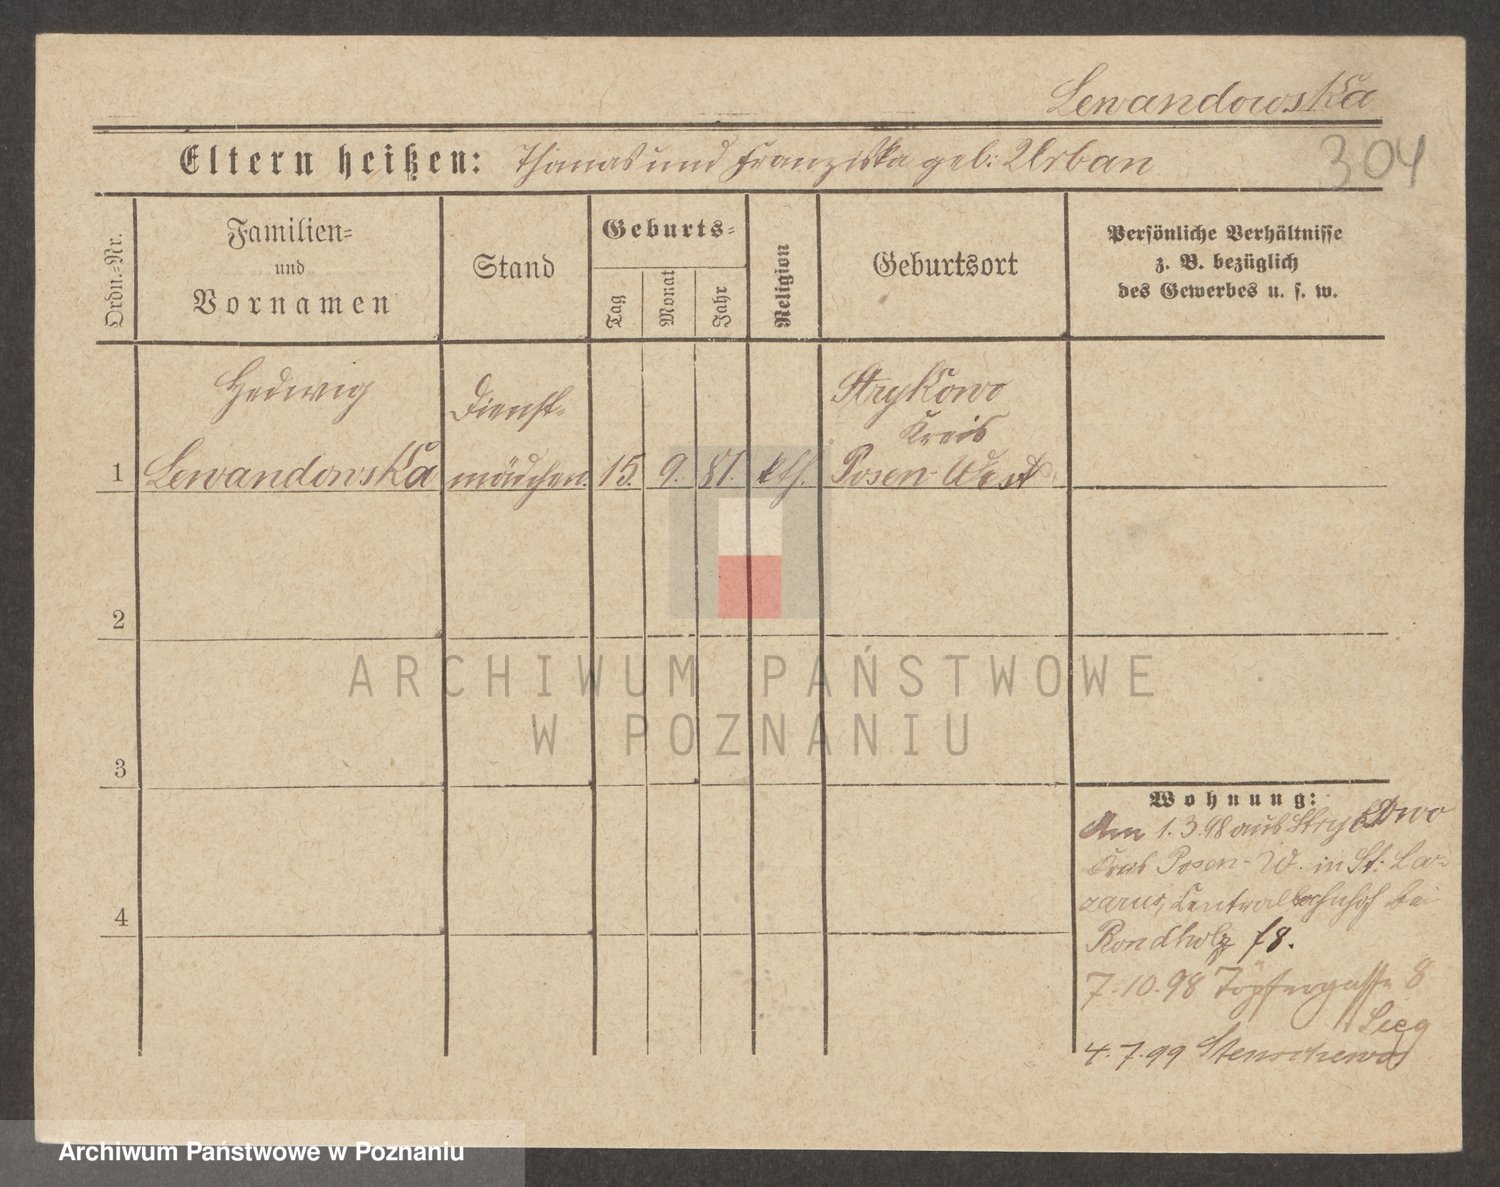 Lewandowska
Eltern heißen: Thomas und Franziska geb: Urban
304
Ordn.=Nr.
Familien=
und
Vornamen
Stand
Geburts=
Tag
Monat
Jahr
Religion
Geburtsort
Persönliche Verhältnisse
z. B. bezüglich
des Gewerbes u. s. w.
Hedwig
Lewandowska
Dienst-
mädchen.
1
15.
9.
81.
kth.
Strykowo
Kreis
Posen-West
2
3
4
ARCHIWUM PAŃSTWOWE
W POZNANIU
Wohnung:
Am 1.3.98 aus Strykowo
Kreis Posen-W. in St. La-
zarus, Centralbahnhof bei
Rondholz f8.
7.10.98 Töpfergasse 8
Sieg
4.7.99 Stenschewo
Archiwum Państwowe w Poznaniu